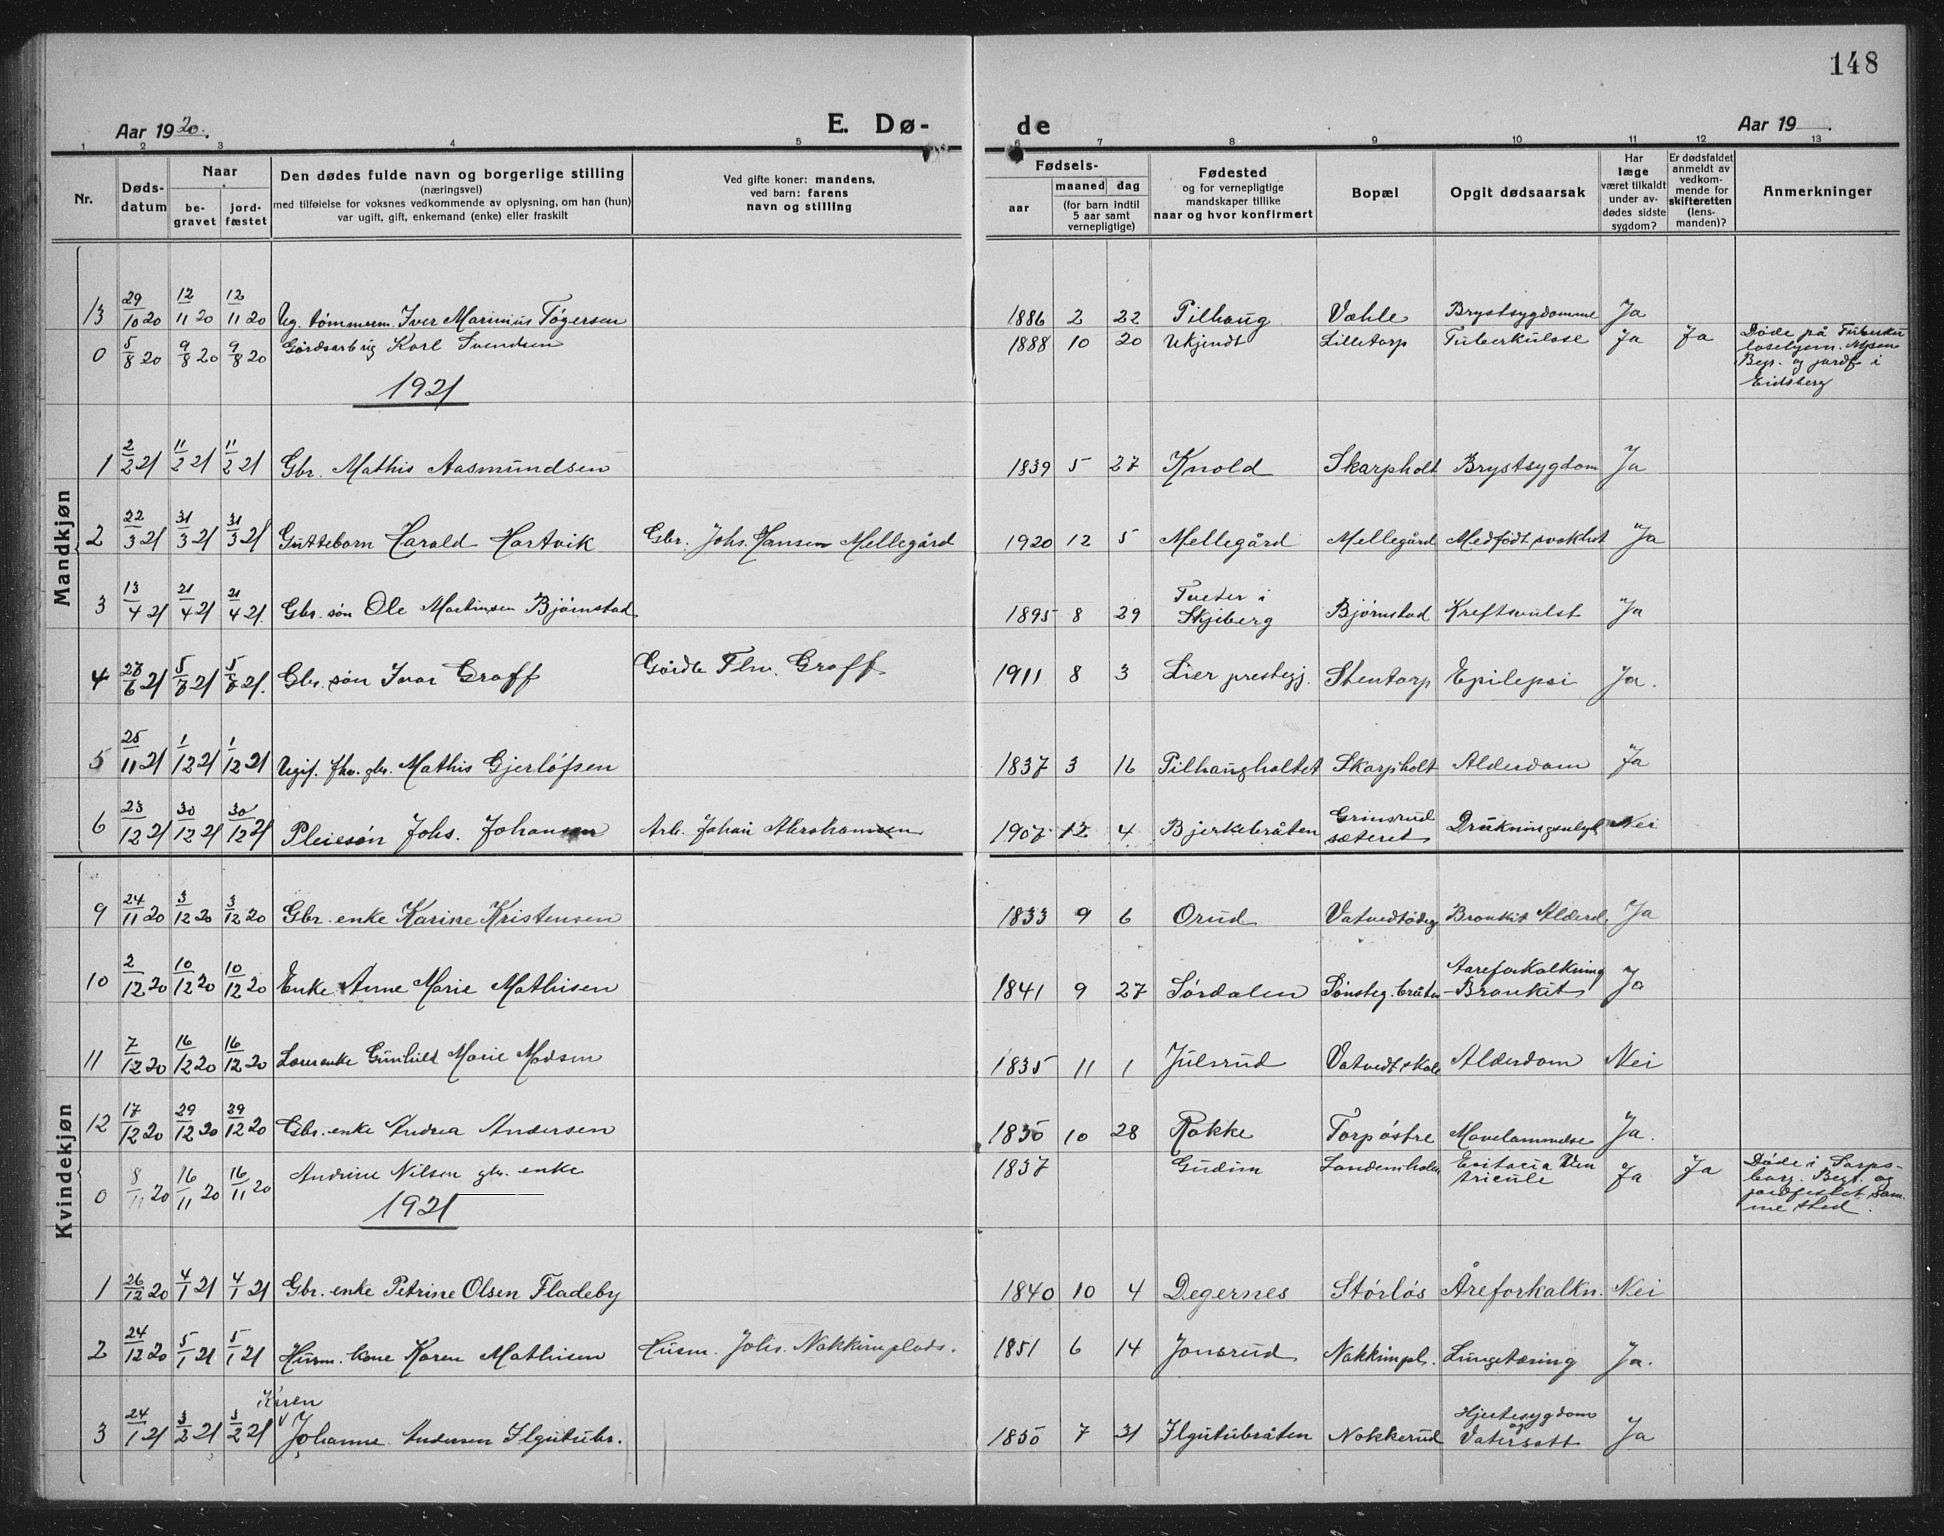 148
Aar 1920.
E. Dø-
de
Aar 19 .
1 2 3 4 5 6 7 8 9 10 11 12 13
Nr.
Døds-
datum
Naar
be-
gravet
jord-
fæstet
Den dødes fulde navn og borgerlige stilling
(næringsvei)
med tilføielse for voksnes vedkommende av oplysning, om han (hun)
var ugift, gift, enkemand (enke) eller fraskilt
Ved gifte koner: mandens,
ved barn: farens
navn og stilling
Fødsels-
aar
maaned dag
(for barn indtil
5 aar samt
vernepligtige)
Fødested
og for vernepligtige
mandskaper tillike
naar og hvor konfirmert
Bopæl
Opgit dødsaarsak
Har
læge
været tilkaldt
under av-
dødes sidste
sygdom?
Er dødsfaldet
anmeldt av
vedkom-
mende for
skifteretten
(lens-
manden)?
Anmerkninger
Mandkjøn
13 29/10 20 12/11 20 12/11 20 Ug. tømmerm. Iver Marinius Tøgersen 1886 2 22 Pilhaug Væhle Brystsygdomme Ja
0 5/8 20 9/8 20 9/8 20 Gårdsarb ug Karl Svendsen 1888 10 20 Ukjendt Lilletorp Tuberkulose Ja Ja Døde på Tuberku
losehjem. Mysen
Begr. og jordf i
Eidsberg
1921
1 2/2 21 11/2 21 11/2 21 Gbr. Mathis Aasmundsen 1839 5 27 Knold Skarpholt Brystsygdom Ja
2 22/3 21 31/3 21 31/3 21 Guttebarn Harald Hartvik Gbr. Johs. Hansen Mellegård 1920 12 5 Mellegård Mellegård Medfødt svakhet Ja
3 13/4 21 21/4 21 21/4 21 Gbr. søn Ole Martinsen Bjørnstad 1895 8 29 Tveter i
Skjeberg Bjørnstad Kreftsvulst Ja
4 28/6 21 5/8 21 5/8 21. Gbr. søn Ivar Graff Gårdb Thv. Graff 1911 8 3 Lier prestegj. Stentorp Epilepsi Ja.
5 25/11 21 1/12 21 1/12 21 Ugif. fhv. gbr. Mathis Gjerløfsen 1837 3 16 Pilhaugholtet Skarpholt Alderdom Ja
6 23/12 21 30/12 21 30/12 21 Pleiesøn Johs. Johansen Arb. Johan Abrahamsen 1907 12 4 Bjerkebråten Grinsrud
sæteret Drukningsulyk Nei
Kvindekjøn
9 24/11 20 3/12 20 3/12 20 Gbr. enke Karine Kristensen 1833 9 6 Orud Vatvedtødeg Bronkit Alderd. Ja
10 2/12 20 10/12 20 10/12 20 Enke Anne Marie Mathisen 1841 9 27 Sørdalen Sønsteg. bråten Aareforkalkning
- Bronkit Ja
11 7/12 20 16/12 20 16/12 20 Gunhild Marie Madsen 1835 11 1 Julsrud Vatvedt skole Alderdom Nei
12 17/12 20 29/12 20 29/12 20 Gbr. enke Andrea Andersen 1850 10 28 Rakke Torp østre Mavelammelse Ja.
0 8/11 20 16/11 20 16/11 20 Andrine Nilsen gbr. enke 1837 Gudim Landemholm Ja Ja Døde i Sarps-
borg. Begr. og
jordfestet sam-
me sted.
1921
1 26/12 20 4/1 21 4/1 21 Gbr. enke Petrine Olsen Fladeby 1840 10 4 Degernes Størløs Åreforkalkn. Nei
2 24/12 20 5/1 21 5/1 21 Husm. kone Karen Mathisen Husm. Johs. Nakkimplads. 1851 6 14 Jonsrud Nakkimpl. Lungetæring Ja.
3 24/1 21 3/2 21 3/2 21 Karen
Johanne Andersen Ilgutubr. 1850 7 31 Ilgutubråten Nakkerud Hjertesygdom
og
Vatersott Ja